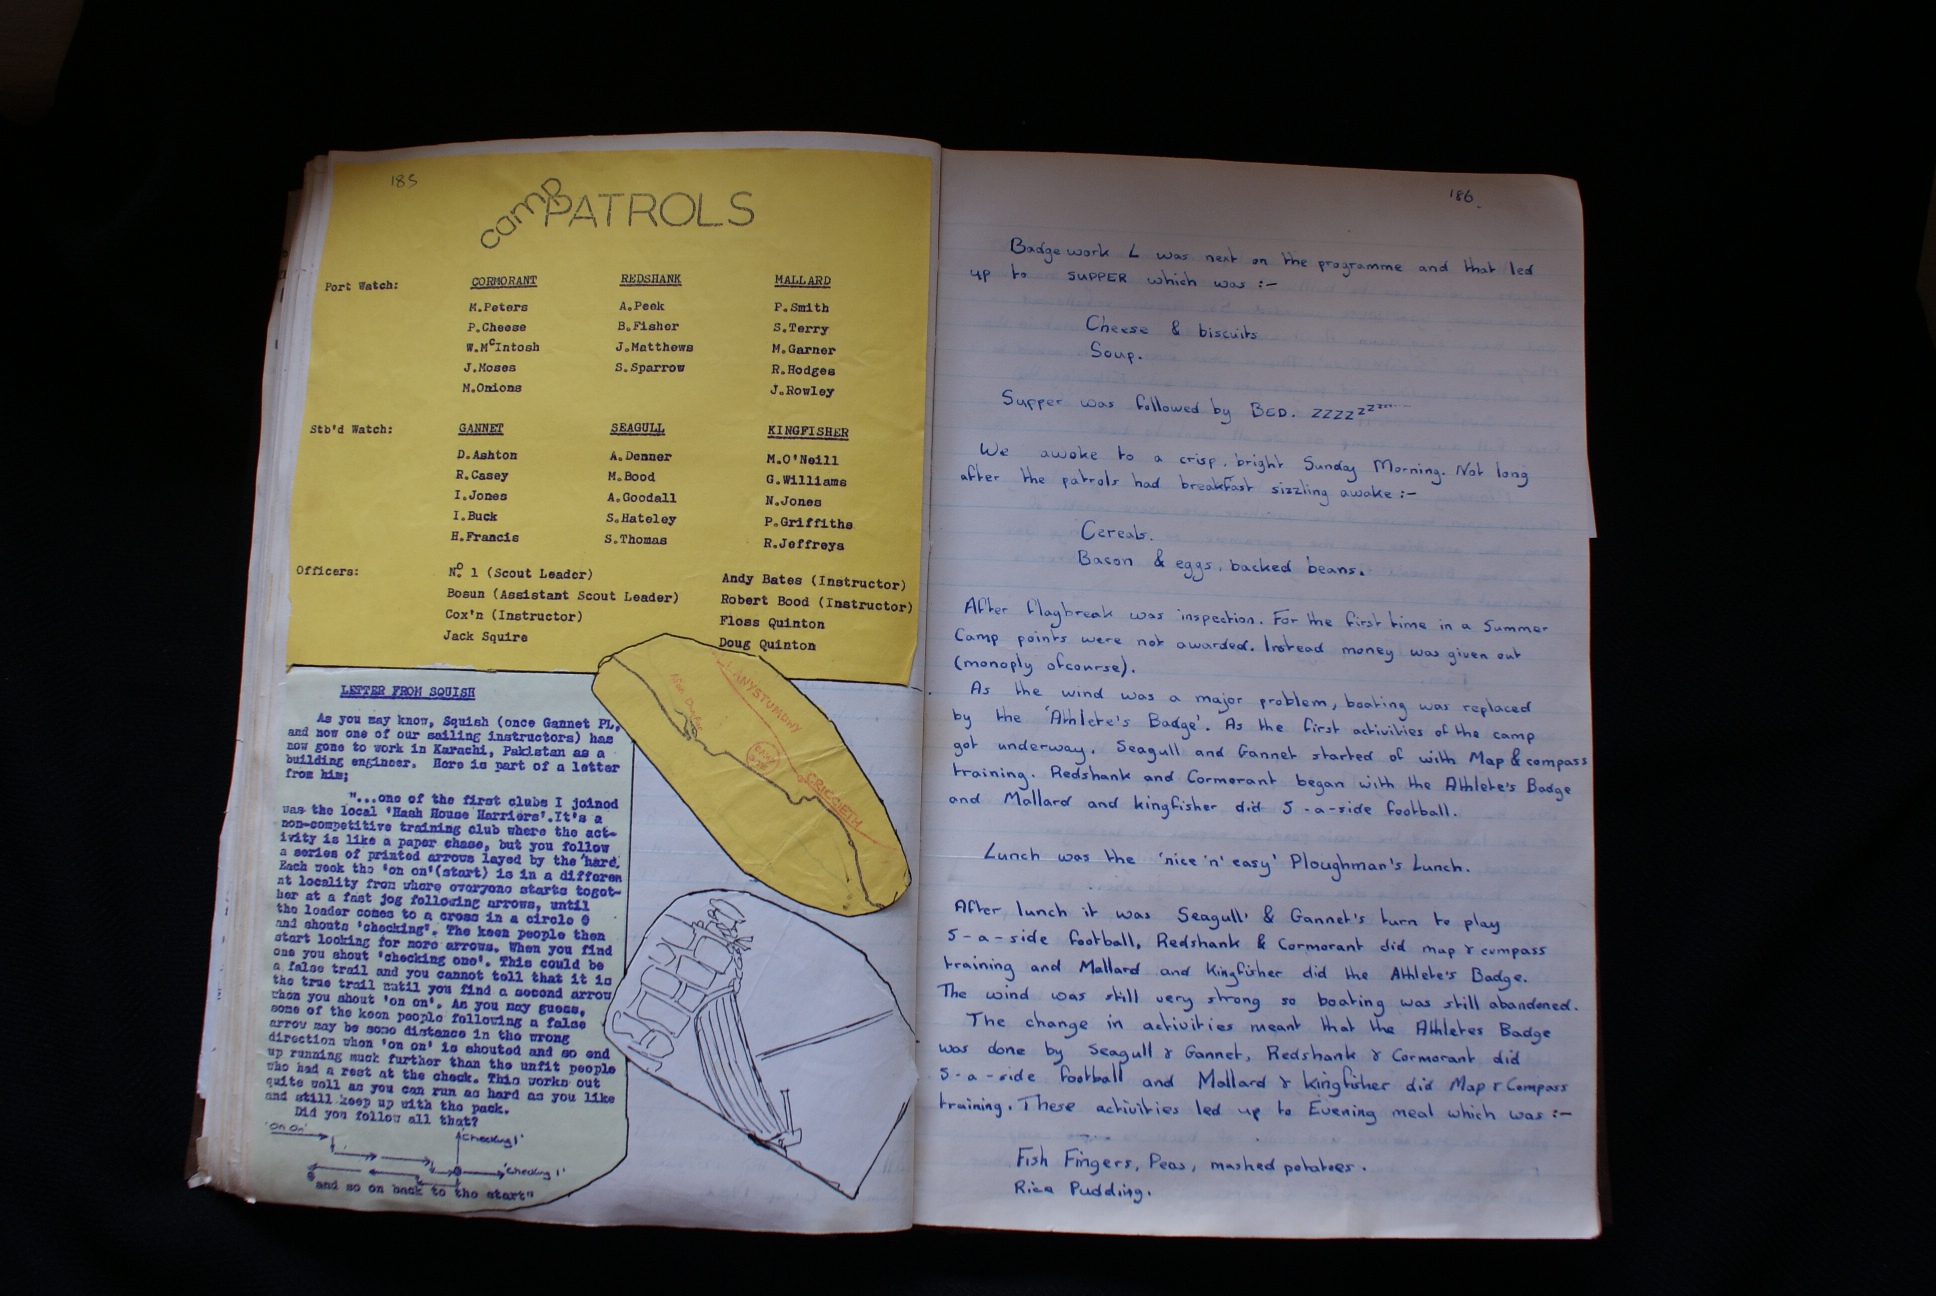 185
camp PATROLS
Port Watch: CORMORANT REDSHANK MALLARD
M.Peters A.Peek P.Smith
P.Cheese B.Fisher S.Terry
W.McIntosh J.Matthews M.Garner
J.Moses S.Sparrow R.Hodges
M.Onions J.Rowley
Stb'd Watch: GANNET SEAGULL KINGFISHER
D.Ashton A.Denner M.O'Neill
R.Casey M.Bood G.Williams
I.Jones A.Goodall N.Jones
I.Buck S.Hateley P.Griffiths
H.Francis S.Thomas R.Jeffreys
Officers: No. 1 (Scout Leader) Andy Bates (Instructor)
Bosun (Assistant Scout Leader) Robert Bood (Instructor)
Cox'n (Instructor) Floss Quinton
Jack Squire Doug Quinton
LETTER FROM SQUISH
As you may know, Squish (once Gannet PL,
and now one of our sailing instructors) has
now gone to work in Karachi, Pakistan as a
building engineer. Here is part of a letter
from him;
"...one of the first clubs I joined
was the local 'Hash House Harriers'.It's a
non-competitive training club where the act-
ivity is like a paper chase, but you follow
a series of printed arrows layed by the 'hard.
Each week the 'on on'(start) is in a differen
nt locality from where everyone starts toget-
her at a fast jog following arrows, until
the leader comes to a cross in a circle
and shouts 'checking'. The keen people then
start looking for more arrows. When you find
one you shout 'checking one'. This could be
a false trail and you cannot tell that it is
the true trail until you find a second arrow
when you shout 'on on'. As you may guess,
some of the keen people following a false
arrow may be some distance in the wrong
direction when 'on on' is shouted and so end
up running much further than the unfit people
who had a rest at the check. This works out
quite well as you can run as hard as you like
and still keep up with the pack.
Did you follow all that?
'On On'
'Checking 1'
'checking 1'
and so on back to the start"
LLANYSTUMDWY
CRICCIETH
186
Badgework L was next on the programme and that led
up to SUPPER which was :-
Cheese & biscuits
Soup.
Supper was followed by BED. ZZZZzzz....
We awoke to a crisp, bright Sunday Morning. Not long
after the patrols had breakfast sizzling awake :-
Cereals.
Bacon & eggs, backed beans.
After flagbreak was inspection. For the first time in a Summer
Camp points were not awarded. Instead money was given out
(monoply ofcourse).
As the wind was a major problem, boating was replaced
by the 'Athlete's Badge'. As the first activities of the camp
got underway. Seagull and Gannet started of with Map & compass
training. Redshank and Cormorant began with the Athlete's Badge
and Mallard and kingfisher did 5-a-side football.
Lunch was the 'nice 'n' easy' Ploughman's Lunch.
After lunch it was Seagull' & Gannet's turn to play
5-a-side football, Redshank & Cormorant did map & compass
training and Mallard and Kingfisher did the Athlete's Badge.
The wind was still very strong so boating was still abandoned.
The change in activities meant that the Athletes Badge
was done by Seagull & Gannet, Redshank & Cormorant did
5-a-side football and Mallard & Kingfisher did Map & Compass
training. These activities led up to Evening meal which was :-
Fish Fingers, Peas, mashed potatoes.
Rice Pudding.